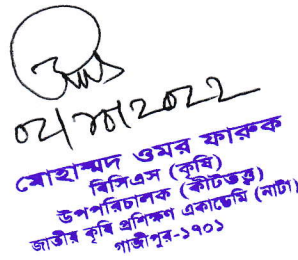 02/ /2022
মোহাম্মদ ওমর ফারুক
বিসিএস (কৃষি)
উপপরিচালক (কীটতত্ত্ব)
জাতীয় কৃষি প্রশিক্ষণ একাডেমি (নাটা)
গাজীপুর-১৭০১